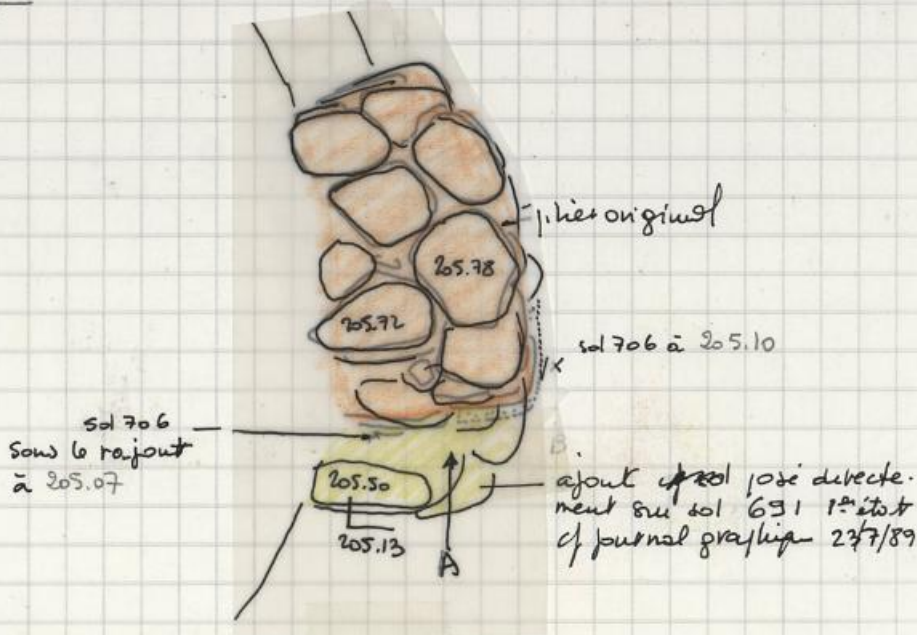 pilier original
205.78
205.72
sol 706 à 205.10
sol 706
sous le rajout
à 205.07
B
205.50
205.13
A
ajout posé directe-
ment sur sol 691 1er état
cf journal graphique 23/7/89